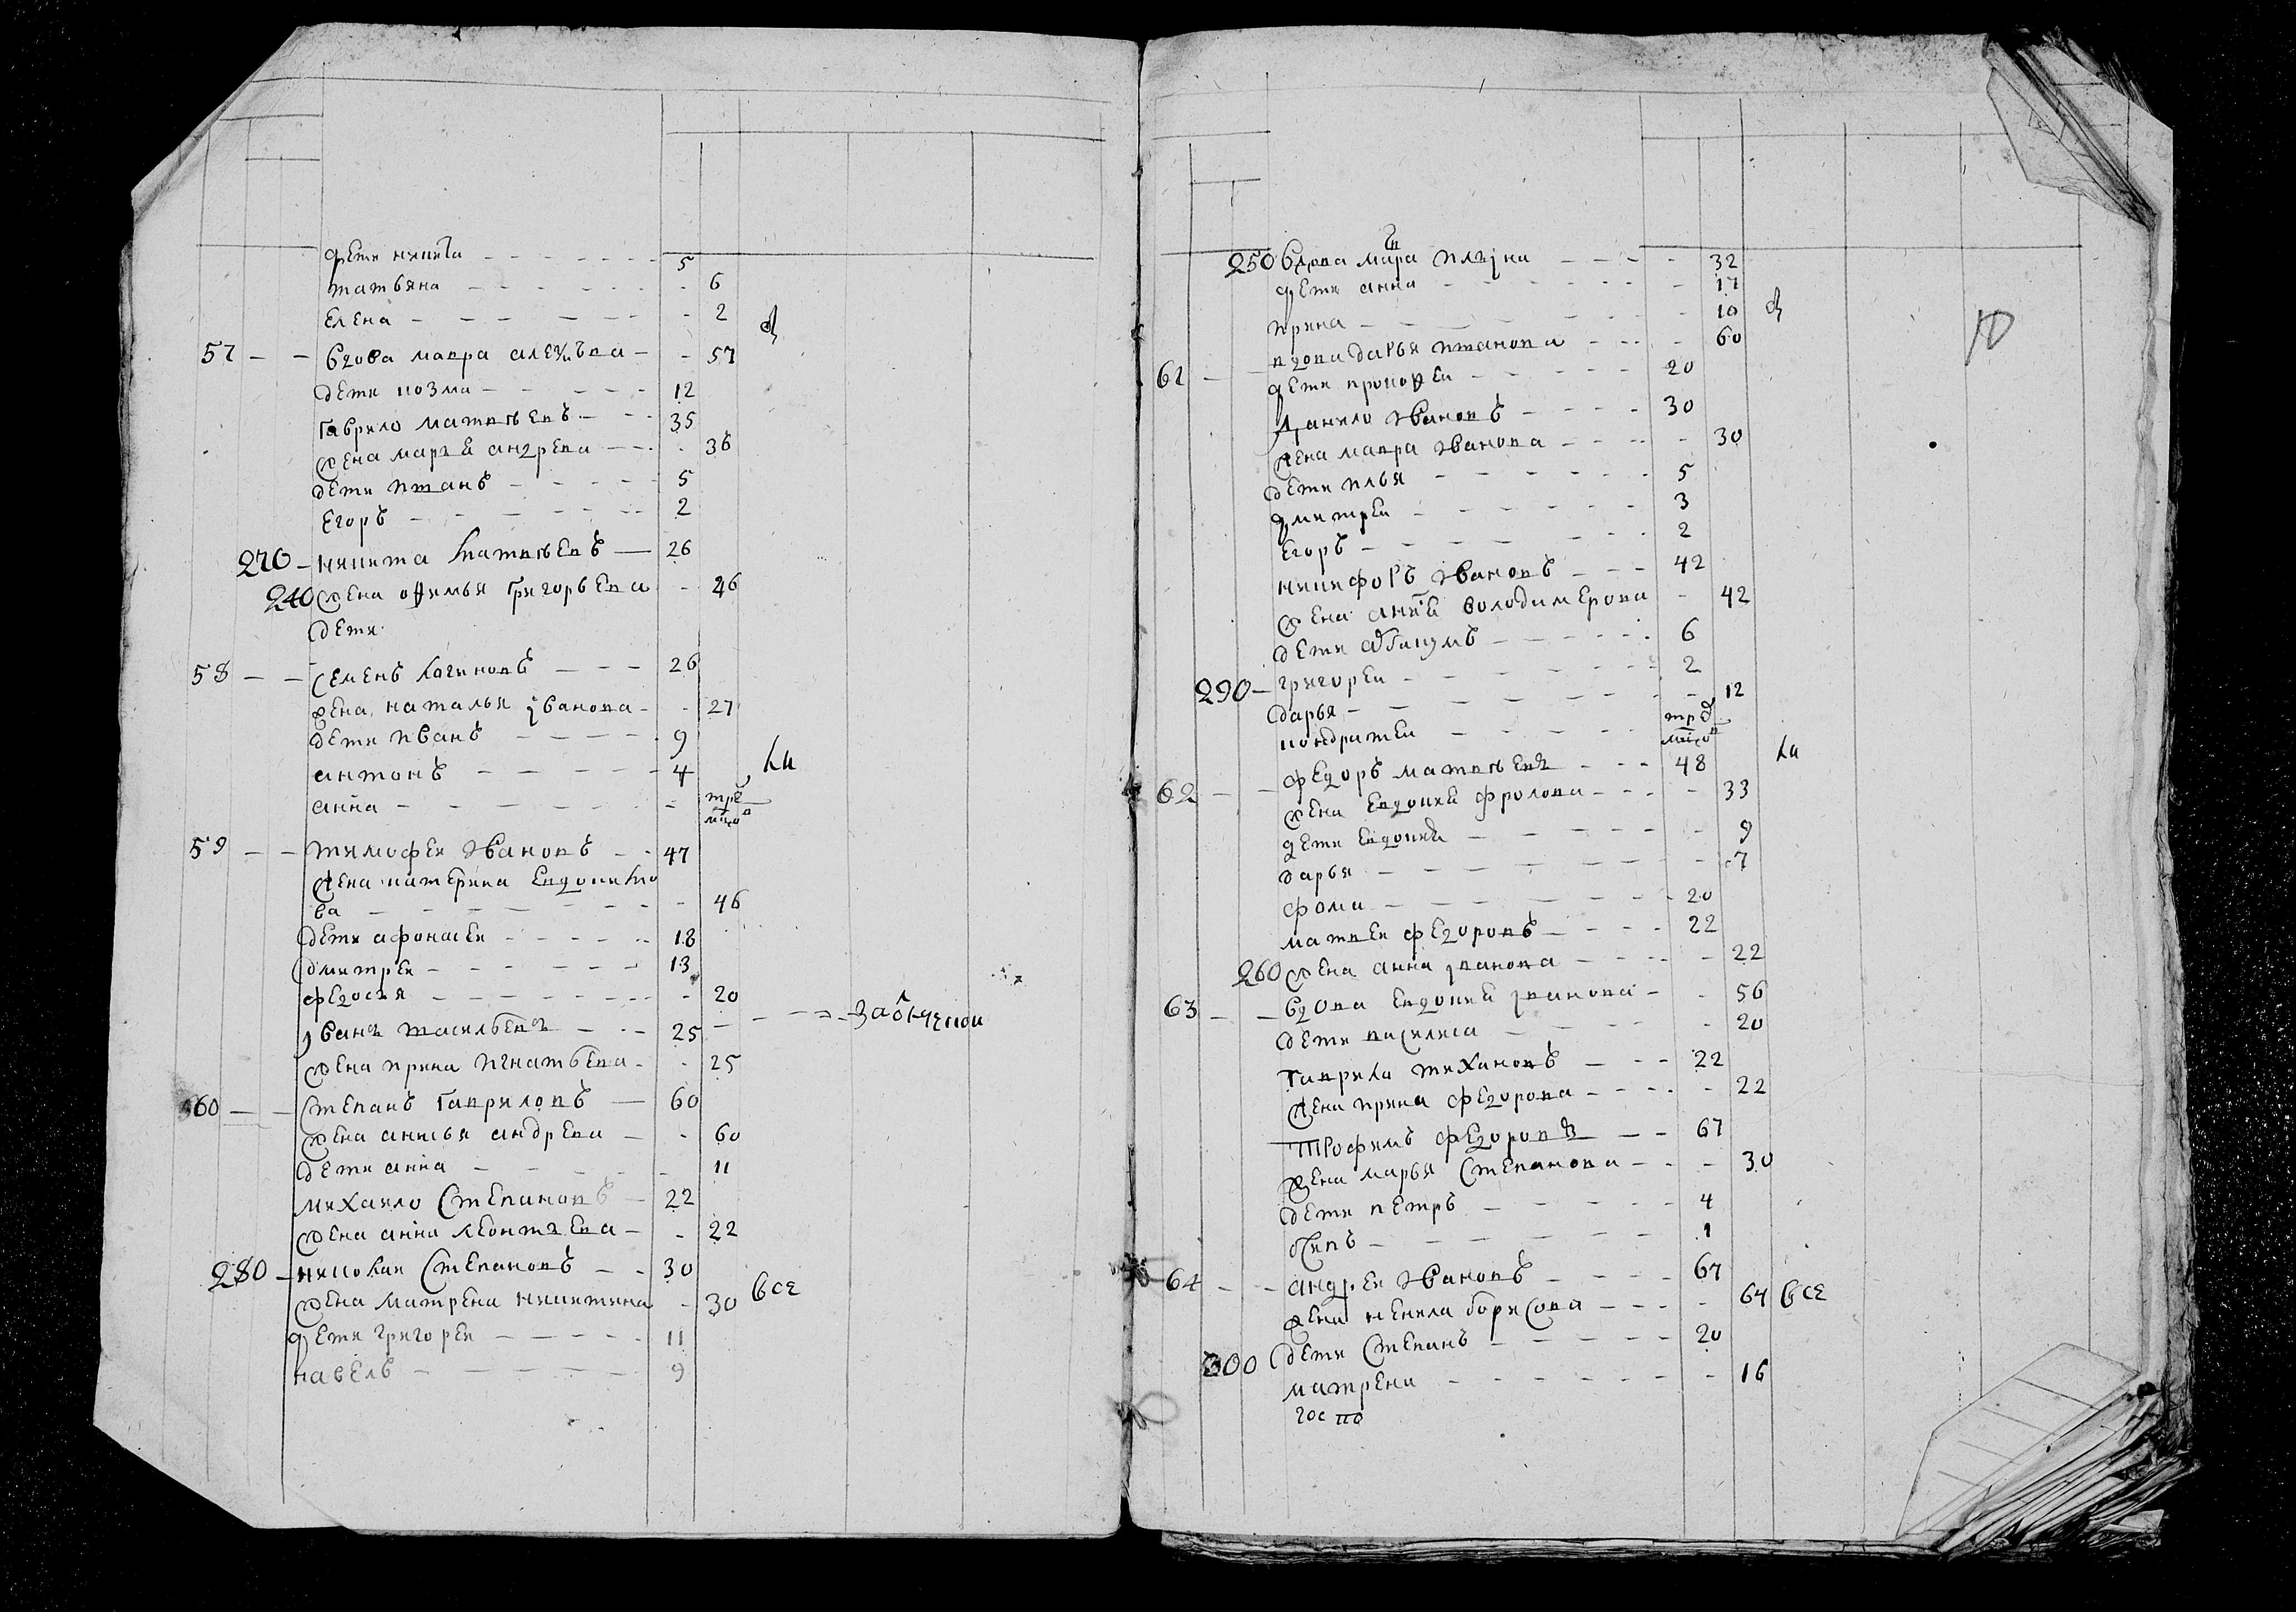 дети никита - - - - - - - 5
татьяна - - - - - - - - 6
елена - - - - - - - 2
57 - - вдова мавра алеѯѣева - - 57
дети козма - - - - - 12
гаврило матвѣевъ - - - 35
жена марья андрева - - - 36
дети иванъ - - - - - 5
егоръ - - - - - - - 2
270 - никита матвѣевъ - 26
240 жена офимья григорьева - 26
дети
58 - - семенъ логиновъ - - - 26
жена наталья iванова - - 27
дети иванъ - - - - - 9
антонъ - - - - - 4
анна - - - - - - - трех месецов
59 - - тимофеи ивановъ - - 47
жена катерина евдокимо
ва - - - - - - - - 46
дети афонасеи - - - - - - 18
дмитреи - - - - - - 13
федосья - - - - - - - - 20
iванъ васильевъ - - - 25
жена ирина игнатьева - - 25
60 - - степанъ гавриловъ - 60
жена анисья андрева - - 60
дети анна - - - - - 11
михаило степановъ - 22
жена анна леонтьева - - 22
280 - николаи степановъ - - 30
жена матрена никитина - 30 все
дети григореи - - - - - 11
павелъ - - - - - - 9
250 вдова мара ильiна - - - - 32
дети анна - - - - - - - 17
ирина - - - - - - - 10
вдова дарья иванова - - - - 60
61 - - дети прокофеи - - - - - 20
данило ивановъ - - - - 30
жена мавра иванова - - - - - 30
дети илья - - - - - - 5
дмитреи - - - - - - 3
егоръ - - - - - - - 2
никифоръ ивановъ - - - 42
жена володимерова - 42
дети - - - - - - 6
290 - григореи - - - - - - - 2
дарья - - - - - - - - 12
кондратеи - - - - - трех месецов
62 - - федоръ матвѣевъ - - - 48
жена евдокия фролова - - - - 33
дети евдокия - - - - - - 9
дарья - - - - - - - 7
фома - - - - - - - 20
матвеи федоровъ - - - - 22
260 жена анна iванова - - - - - 22
63 - - вдова евдокия iванова - - 56
дети василиса - - - - - 20
гаврила тихановъ - - - 22
жена ирина федорова - - - - - 22
трофимъ федоровъ - - 67
жена марья степанова - - - 30
дети петръ - - - - - 4
осипъ - - - - - - 1
64 - - андреи ивановъ - - - - 67
жена ненила борисова - - - - 64 все
300 дети степанъ - - - - - 20
матрена - - - - - - - 16